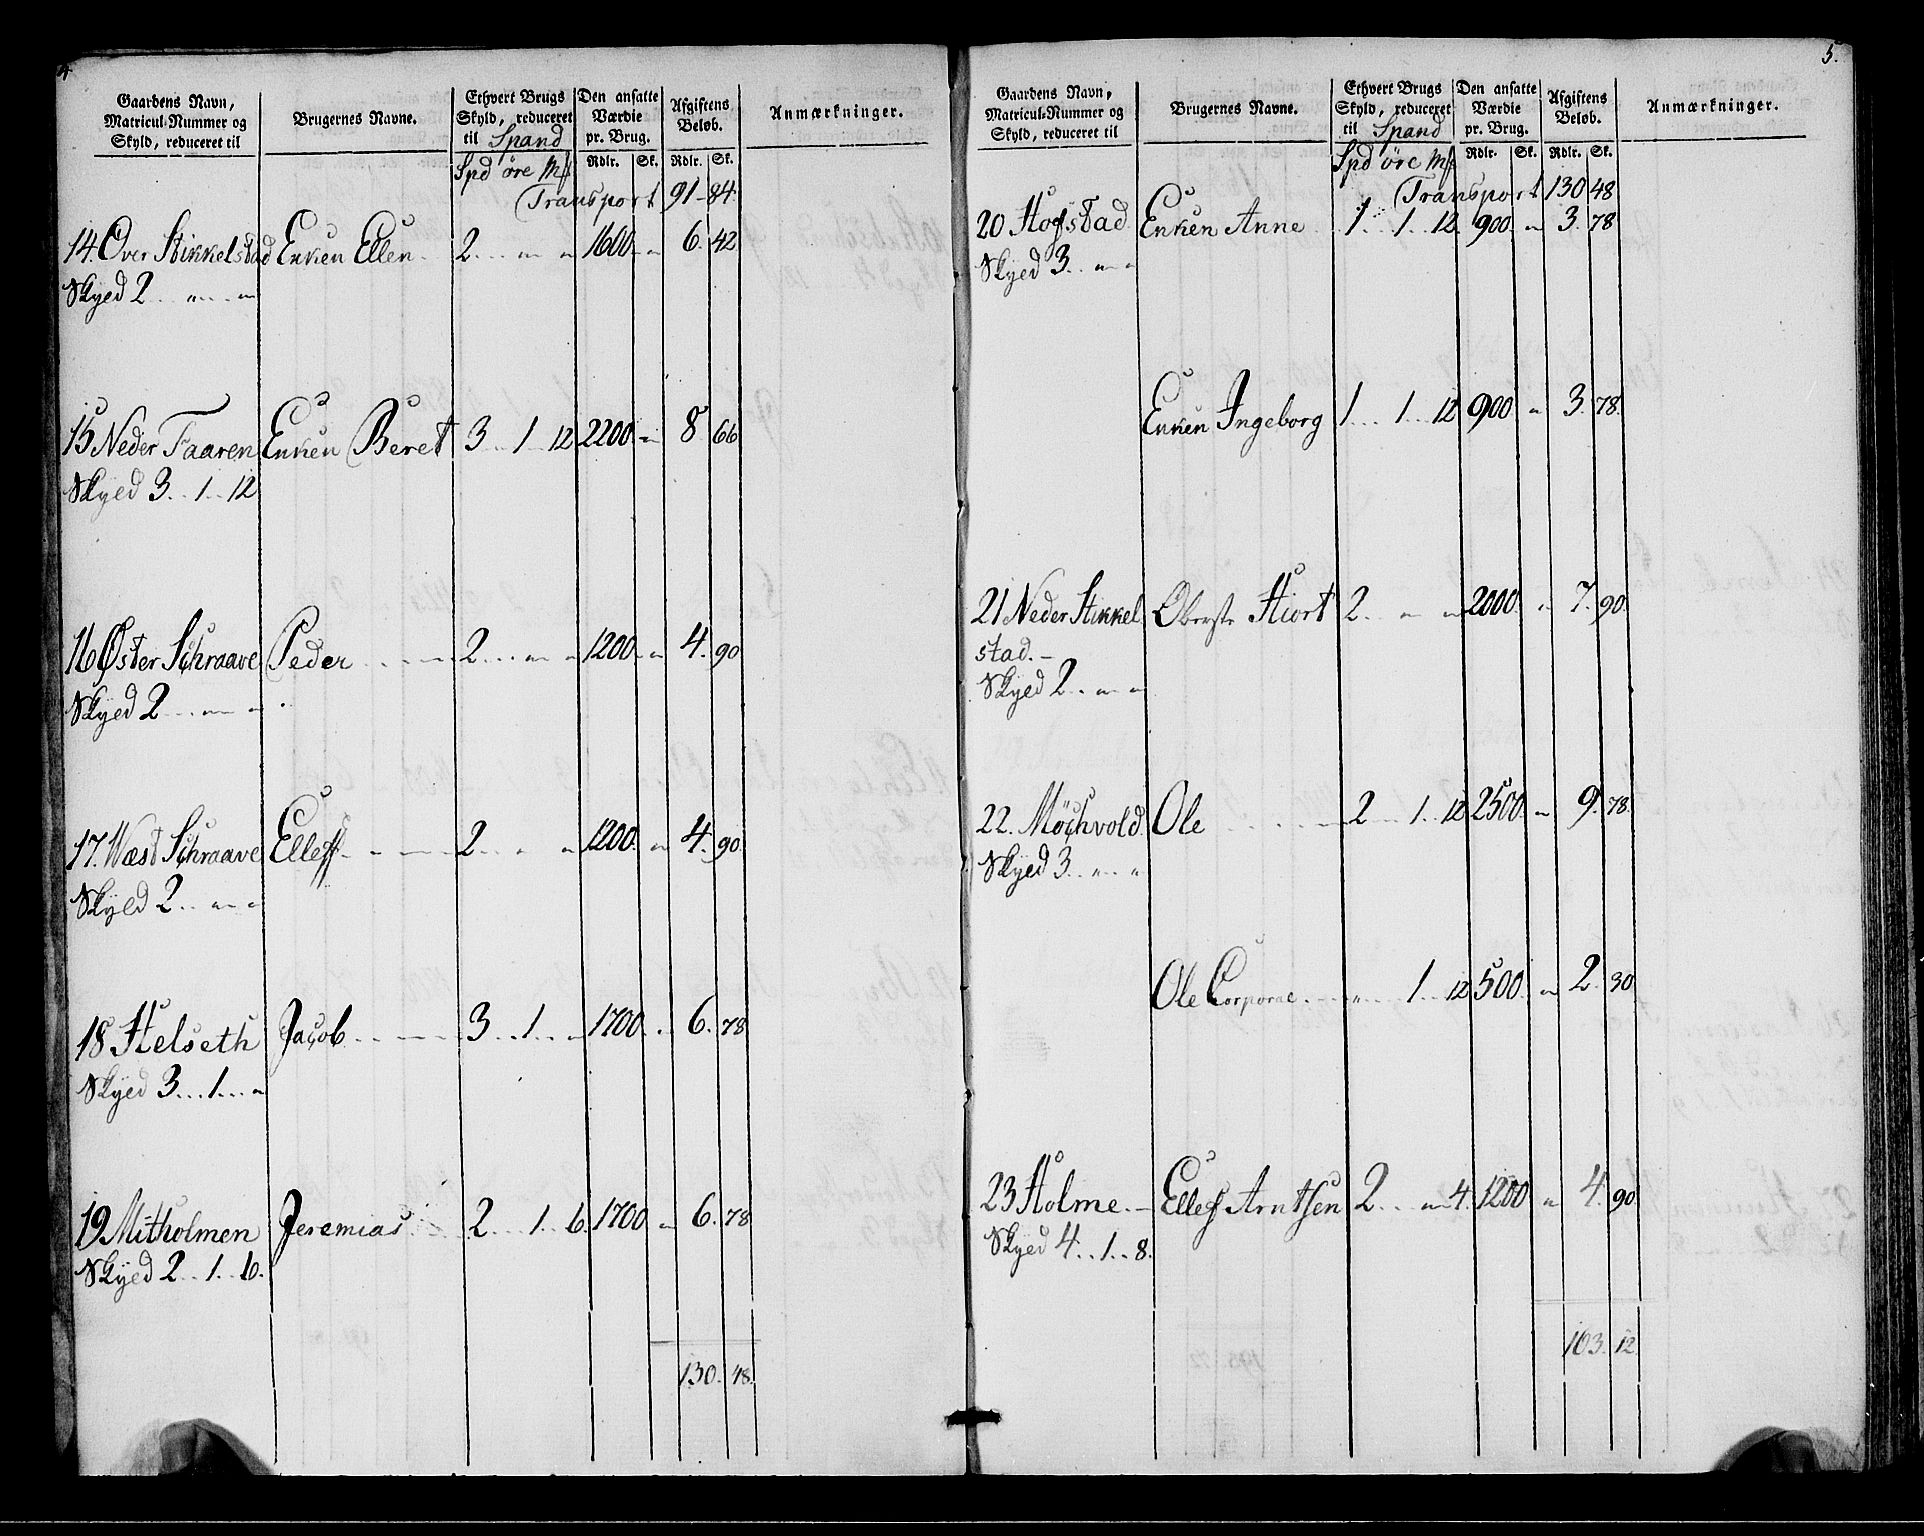 4
Gaardens Navn, Matricul-Nummer og Skyld, reduceret til | Brugernes Navne. | Ethvert Brugs Skyld, reduceret til Spand | Den ansatte Værdie pr. Brug. | Afgiftens Beløb. | Anmærkninger.
Spd öre Mk | Rdlr. Sk. | Rdlr. Sk.
Transport 91 - 84.
14. Over Stikkelstad Enken Ellen 2 .. " " 1600 - " 6. 42
Skyed 2 .. " .. "
15 Neder Faaren Enken Beret 3 .. 1 .. 12 2200 - " 8 66
Skyed 3 .. 1 .. 12
16 Øster Schraave Peder 2 ... " " 1200 - " 4. 90
Skyed 2 .. " "
17. Wæst Schraave Elleff 2 ... " " 1200. " 4. 90.
Skyld 2 .. " "
18 Helseth Jacob 3 .. 1 .. " 1700. " 6. 78
Skyed 3 ... 1 ... "
19 Mitholmen Jeremias 2 ... 1 .. 6. 1700 " 6. 78
Skyed 2 .. 1 .. 6.
130. 48.
5.
Gaardens Navn, Matricul-Nummer og Skyld, reduceret til | Brugernes Navne. | Ethvert Brugs Skyld, reduceret til Spand | Den ansatte Værdie pr. Brug. | Afgiftens Beløb. | Anmærkninger.
Spd öre Mk | Rdlr. Sk. | Rdlr. Sk.
Transport 130 48
20 Hofstad Enken Anne 1 .. 1 .. 12. 900 " 3. 78
Skyed 3 .. " "
Enken Ingeborg 1 ... 1 .. 12 900 " 3. 78.
21 Neder Stikkel Oberste Hiort 2 .. " " 2000. " 7. 90.
stad. -
Skyed 2 .. " "
22. Möchvold Ole 2 .. 1 .. 12 2500. " 9. 78.
Skyed 3 .. " "
Ole Corporal " ... 1 .. 12 500. " 2. 30
23 Holme. - Ellef Arntsen 2 .. " 4. 1200 " 4. 90
Skyed 4 .. 1 .. 8.
103. 12.